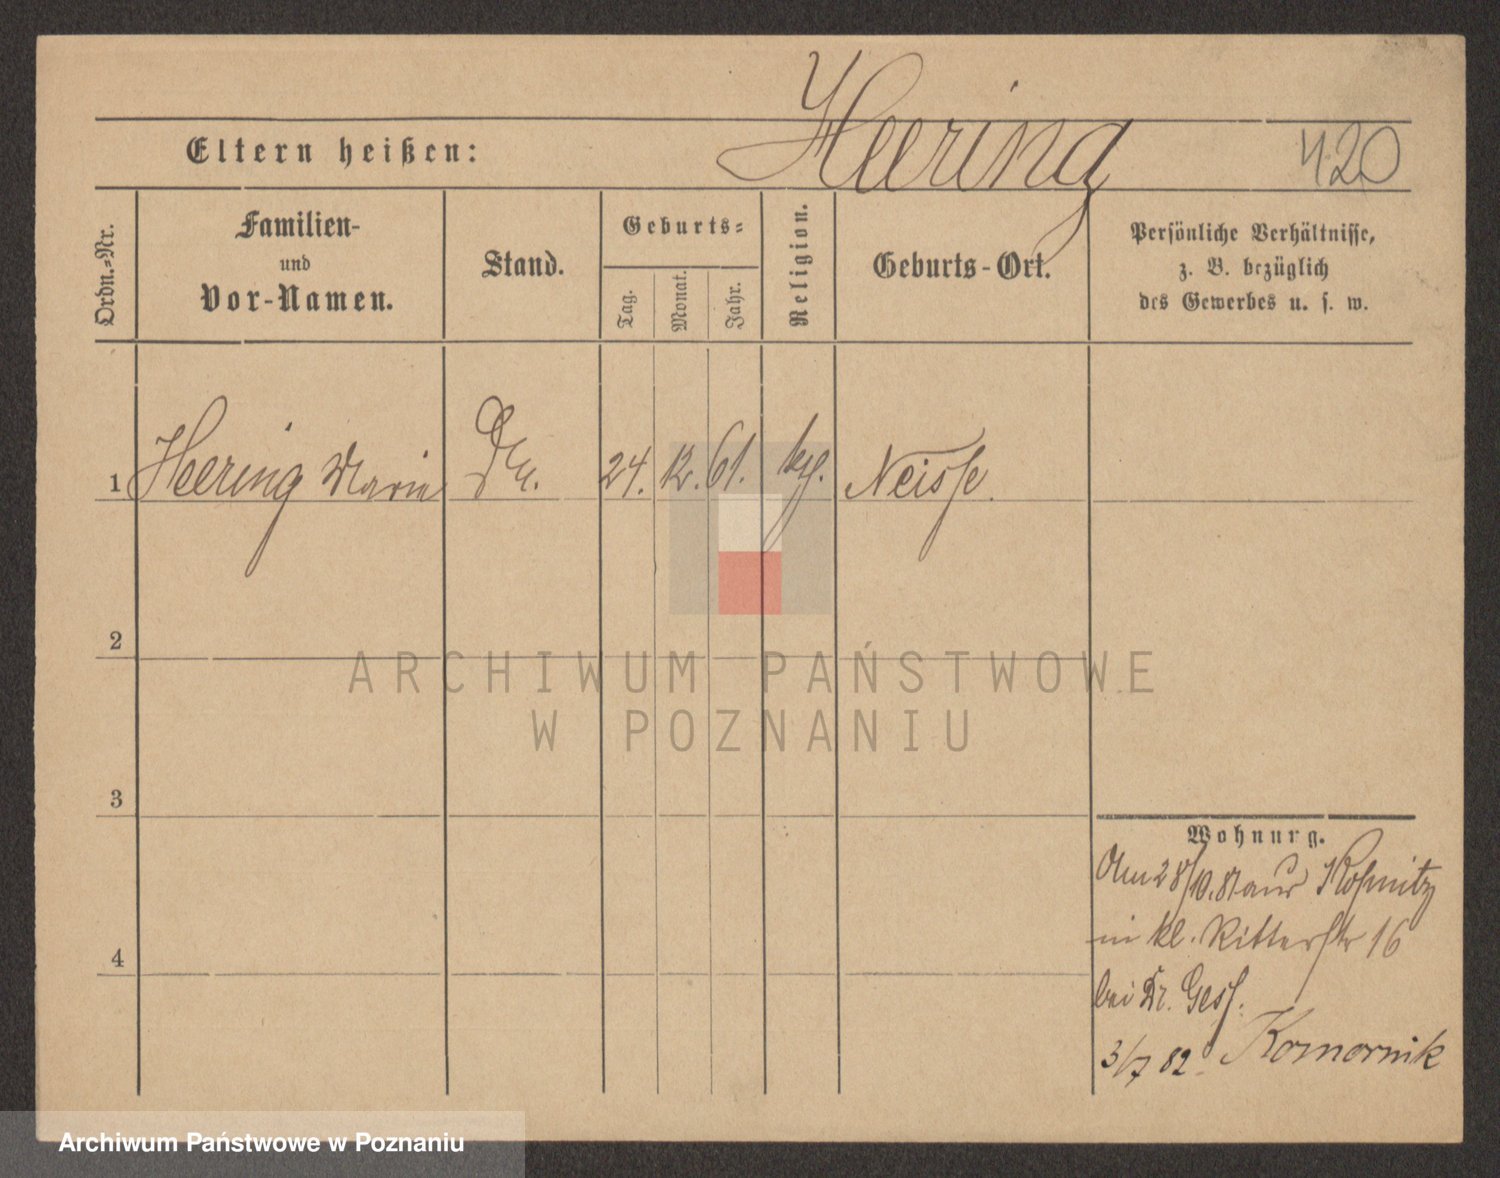 Heering
Eltern heißen: 420
Ordn.=Nr. Familien- und Vor-Namen. Stand. Geburts= Tag. Monat. Jahr. Religion. Geburts-Ort. Persönliche Verhältnisse, z. B. bezüglich des Gewerbes u. s. w.
1 Heering Marie 24. 12. 61. Neisse.
2
ARCHIWUM PAŃSTWOWE
W POZNANIU
3
Wohnung.
Am 28/10.81 aus
in kl. Ritterstr 16
4
bei Dr. Gess.
3/7 82. Komornik
Archiwum Państwowe w Poznaniu